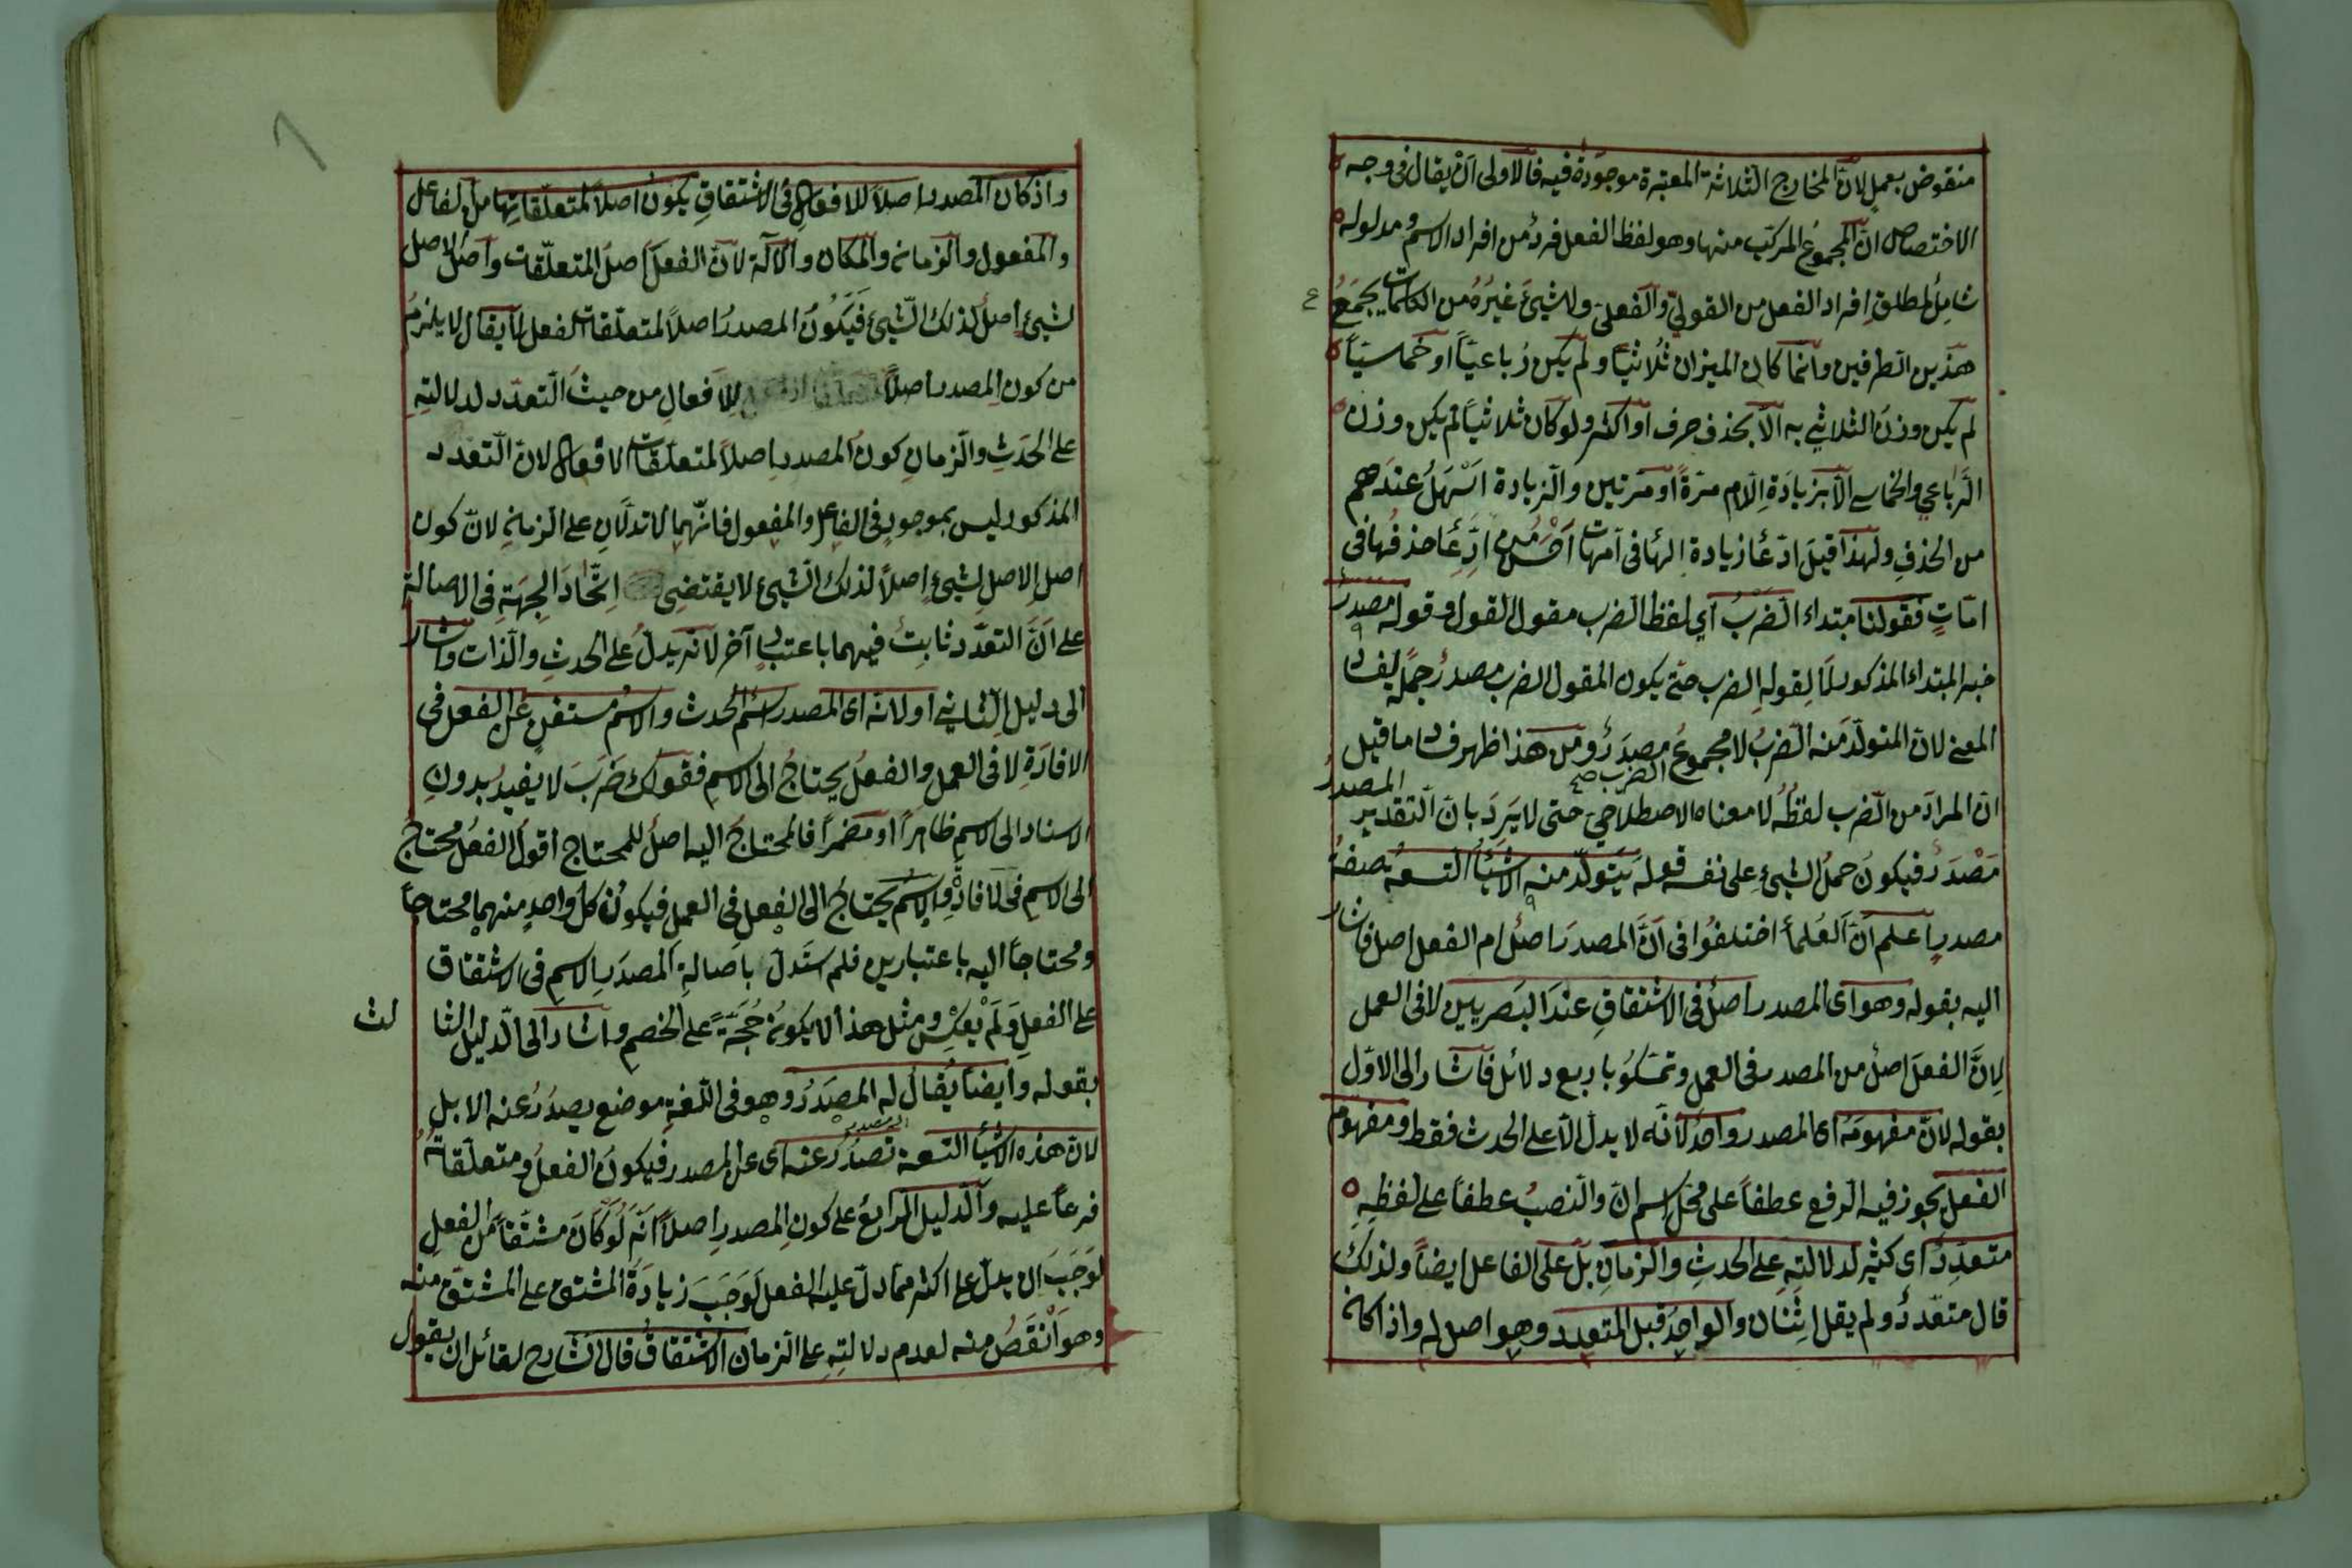 منقوض بعمل لانّ المخارج الثلاثة المعتبرة موجودة فيه فالاولى ان يقال فى وجه
الاختصاص انّ المجموع المركّب منها وهو لفظ الفعل فرد من افراد الاسم ومدلوله
شامل لمطلق افراد الفعل من القولىّ والفعلىّ ولا شيئ غيره من الكلمات يجمع
هذين الطرفين وانّما كان الميزان ثلاثيّاً ولم يكن رباعيّاً او خماسيّاً
لم يكن وزن الثلاثي به الّا بحذف حرف او اكثر ولو كان ثلاثيّاً لم يكن وزن
الرّباعي والخماسي الّا بزيادة اللام مرّةً او مرّتين والزيادة اسهل عندهم
من الحذف ولهذا قيل ادّعأ زيادة الهأ فى امّهات احسن من ادّعأ حذفها فى
امّات فقولنا مبتداء الضرب اي لفظ الضرب مقول القول وقوله مصدر
خبر المبتداء المذكور لا لقوله الضرب حتّى يكون المقول الضرب مصدر جملة لفساد
المعنى لانّ المتولّد منه الضرب لا مجموع الضرب صح مصدر ومن هذا ظهر فساد ما قيل
انّ المراد من الضرب لفظه لا معناه الاصطلاحيّ حتى لا يرد بانّ التقدير المصدر
مَصْدَر فيكون حمل الشيئ على نفسه قوله يتولّد منه الاشيأ التسعة صفة
مصدر اعلم انّ العلمأ اختلفوا فى انّ المصدر اصل ام الفعل اصل فاشار
اليه بقوله وهو اى المصدر اصل فى الاشتقاق عند البصريين لا فى العمل
لانّ الفعل اصل من المصدر فى العمل وتمسّكو باربع دلائل فاشار الى الاوّل
بقوله لانّ مفهومه اى المصدر واحد لأنّه لا يدلّ الّا على الحدث فقط ومفهوم
الفعل يجوز فيه الرفع عطفاً على محلّ اسم انّ والنصب عطفاً على لفظه
متعدّد اى كثير لدلالته على الحدث والزمان بل على الفاعل ايضاً ولذلك
قال متعدّد ولم يقل اثنان والواحد قبل المتعدد وهو اصل له واذا كان
واذ كان المصدر اصلاً للافعال فى الاشتقاق يكون اصلاً لمتعلّقاتها من الفاعل
والمفعول والزمان والمكان والآلة لانّ الفعل اصل المتعلّقات واصل الاصل
لشيئ اصل لذلك الشيئ فيكون المصدر اصلاً لمتعلّقات الفعل لا يقال لا يلزم
من كون المصدر اصلاً للافعال من حيث التعدّد لدلالته
على الحدث والزمان كون المصدر اصلاً لمتعلّقات الافعال لانّ التعدد
المذكور ليس بموجود فى الفاعل والمفعول فانّهما لا تدلّان على الزمان لانّ كون
اصل الاصل لشيئ اصلاً لذلك الشيئ لا يقتضى اتّحاد الجهة فى الاصالة
على انّ التعدّد ثابت فيهما باعتبار آخر لانّه يدلّ على الحدث والذات واشار
الى دليل الثاني او لانّه اى المصدر اسم الحدث والاسم مستغن عن الفعل فى
الافادة لا فى العمل والفعل يحتاج الى الاسم فقولك ضرب لا يفيد بدون
الاسناد الى الاسم ظاهراً او مضمراً فالمحتاج اليه اصل للمحتاج اقول الفعل محتاج
الى الاسم فى الافادة والاسم يحتاج الى الفعل فى العمل فيكون كلّ واحد منهما محتاجاً
ومحتاجاً اليه باعتبارين فلم استدلّ باصالة المصدر الاسم فى الاشتقاق
على الفعل ولم يعكس ومثل هذا لا يكون حجّةً على الخصم واشار الى الدليل الثا
لث
بقوله وايضاً يقال له المصدر وهو فى اللغة موضع يصدر عنه الابل
لانّ هذه الاشيأ التسعة تصدر عنه اى عن المصدر فيكون الفعل ومتعلّقاته
فرعاً عليه والدليل الرابع على كون المصدر اصلاً انّه لو كان مشتقّاً من الفعل
لوجب ان يدلّ على اكثر ممّا دلّ عليه الفعل لوجب زيادة المشتق على المشتقّ منه
وهو انقص منه لعدم دلالته على الزمان الاشتقاق قال الشارح لقائل ان يقول